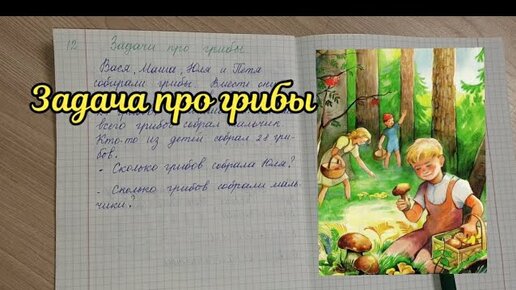 12 Задачи про грибы
Вася, Маша, Юля и Петя
собирали грибы. Вместе они
Задача про грибы
всего грибов собрал мальчик.
Кто-то из детей собрал 28 гри-
бов.
- Сколько грибов собрала Юля?
- Сколько грибов собрали маль-
чики?